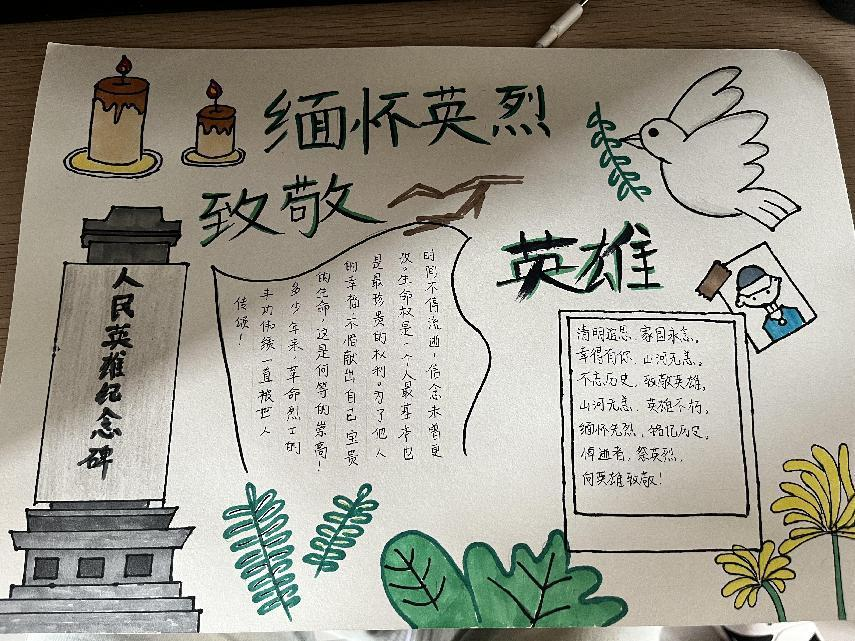 缅怀英烈
致敬
英雄
人民英雄纪念碑
时间不停流逝，信念未曾更
改。生命权是一个人最基本也
是最珍贵的权利。为了他人
的幸福不惜献出自己宝贵
的生命，这是何等的崇高！
多少年来，革命烈士的
丰功伟绩一直被世人
传颂！
清明追思，家国永念。
幸得有你，山河无恙。
不忘历史，致敬英雄，
山河无恙，英雄不朽。
缅怀先烈，铭记历史。
悼逝者，祭英烈，
向英雄致敬！